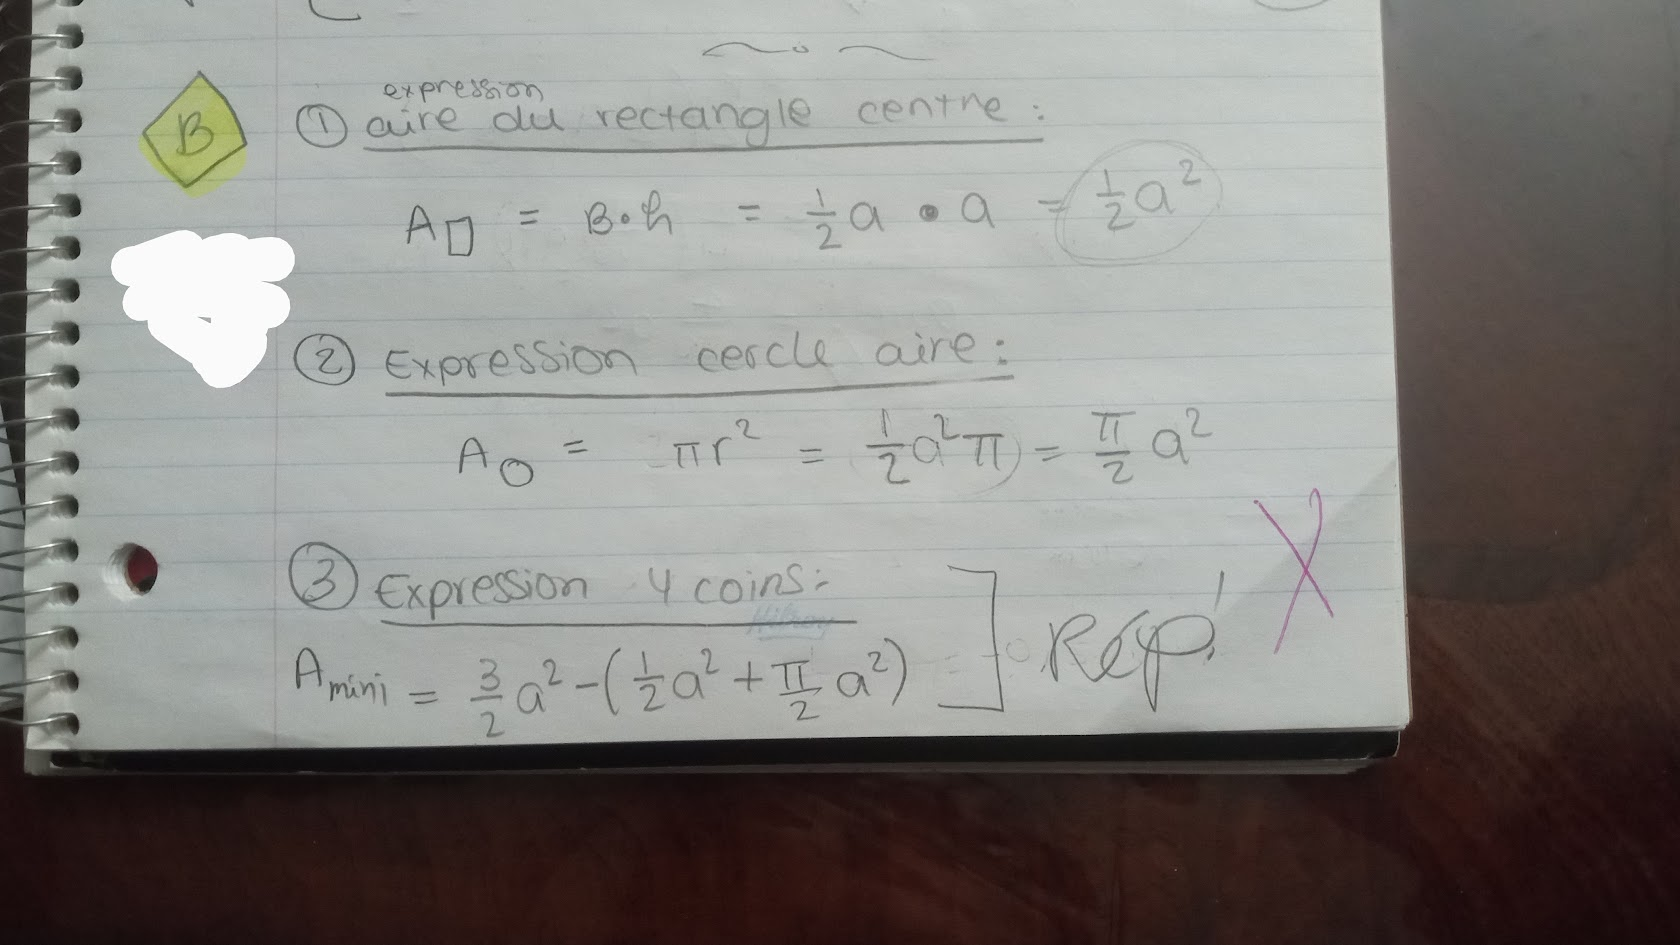 B
① expression
aire du rectangle centre :
A▯ = B·h = 1/2 a • a = 1/2 a²
② Expression cercle aire :
A○ = πr² = 1/2 a² π = π/2 a²
③ Expression 4 coins :
A mini = 3/2 a² - (1/2 a² + π/2 a²) Rép!